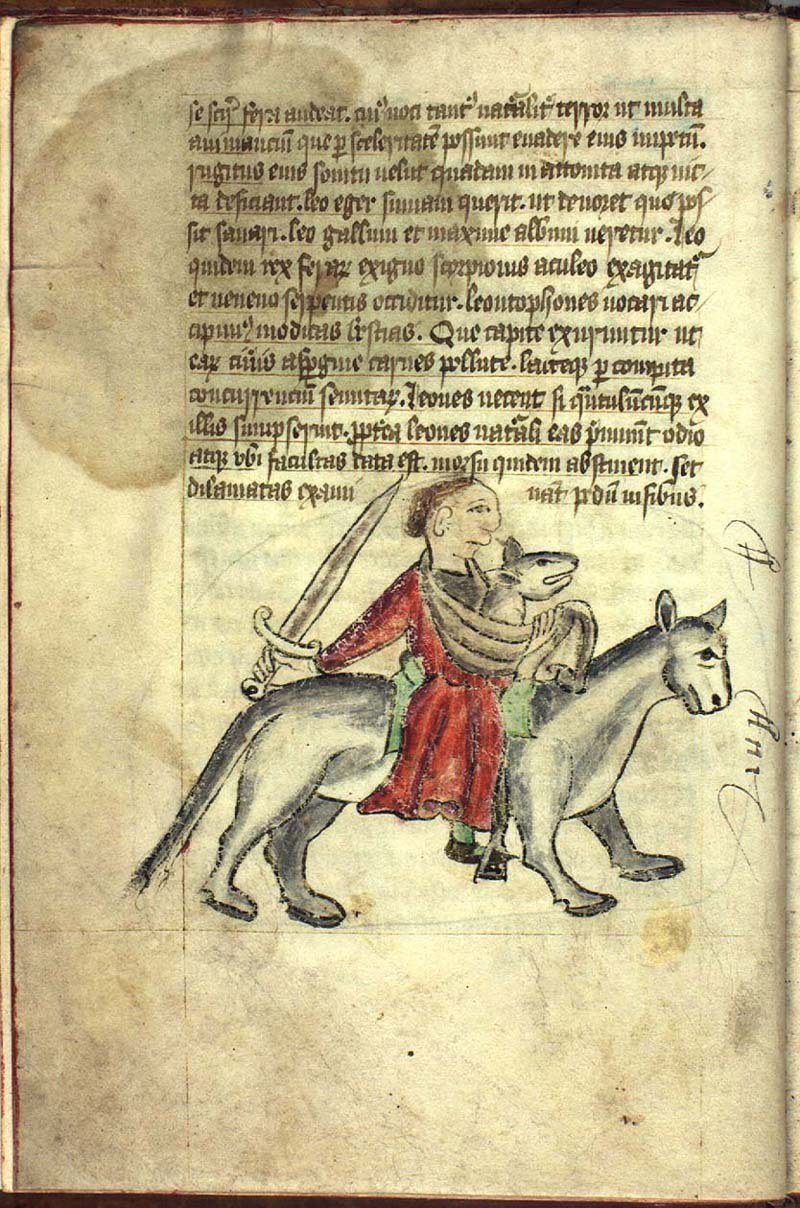 se scit fera audeat. cui' uoci tant' natalit' terror ut multa
animanciu que p sceleritate possunt euadere eius impetu.
rugitus eius sonitu uelut quadam ui attonita atq uic-
ta deficiant. leo eger simiam querit. ut deuoret quo pos-
sit sanari. leo gallum et maxime album ueretur. Leo
quidem rex ferar exiguo scorpionis aculeo exagitat'
et ueneno serpentis occiditur. leontophones uocari ac-
cipim' modicas bestias. Que capite exuruntur ut
ear cineris aspgine carnes pollute. iacteq p compita
concurrenciu semitar. Leones necent si quntulucunq ex
illis sumpserint. ppterea leones natali eas pmunt odio
atq vbi facultas data est. morsu quidem abstinent. set
dilaniatas exami nat pedu nisibus.